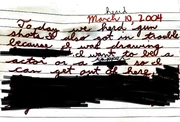 herd
March 10, 2004
Today we herd gun
shots I also got in trouble
because I was drawing
I want to be a
actor or a so I
can get out of here.